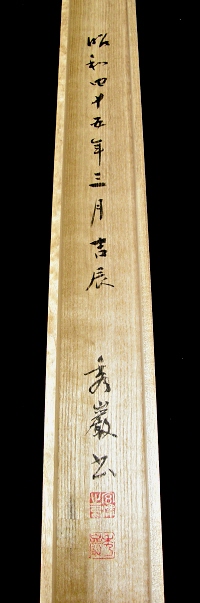 昭和四十五年三月吉辰
秀巖書